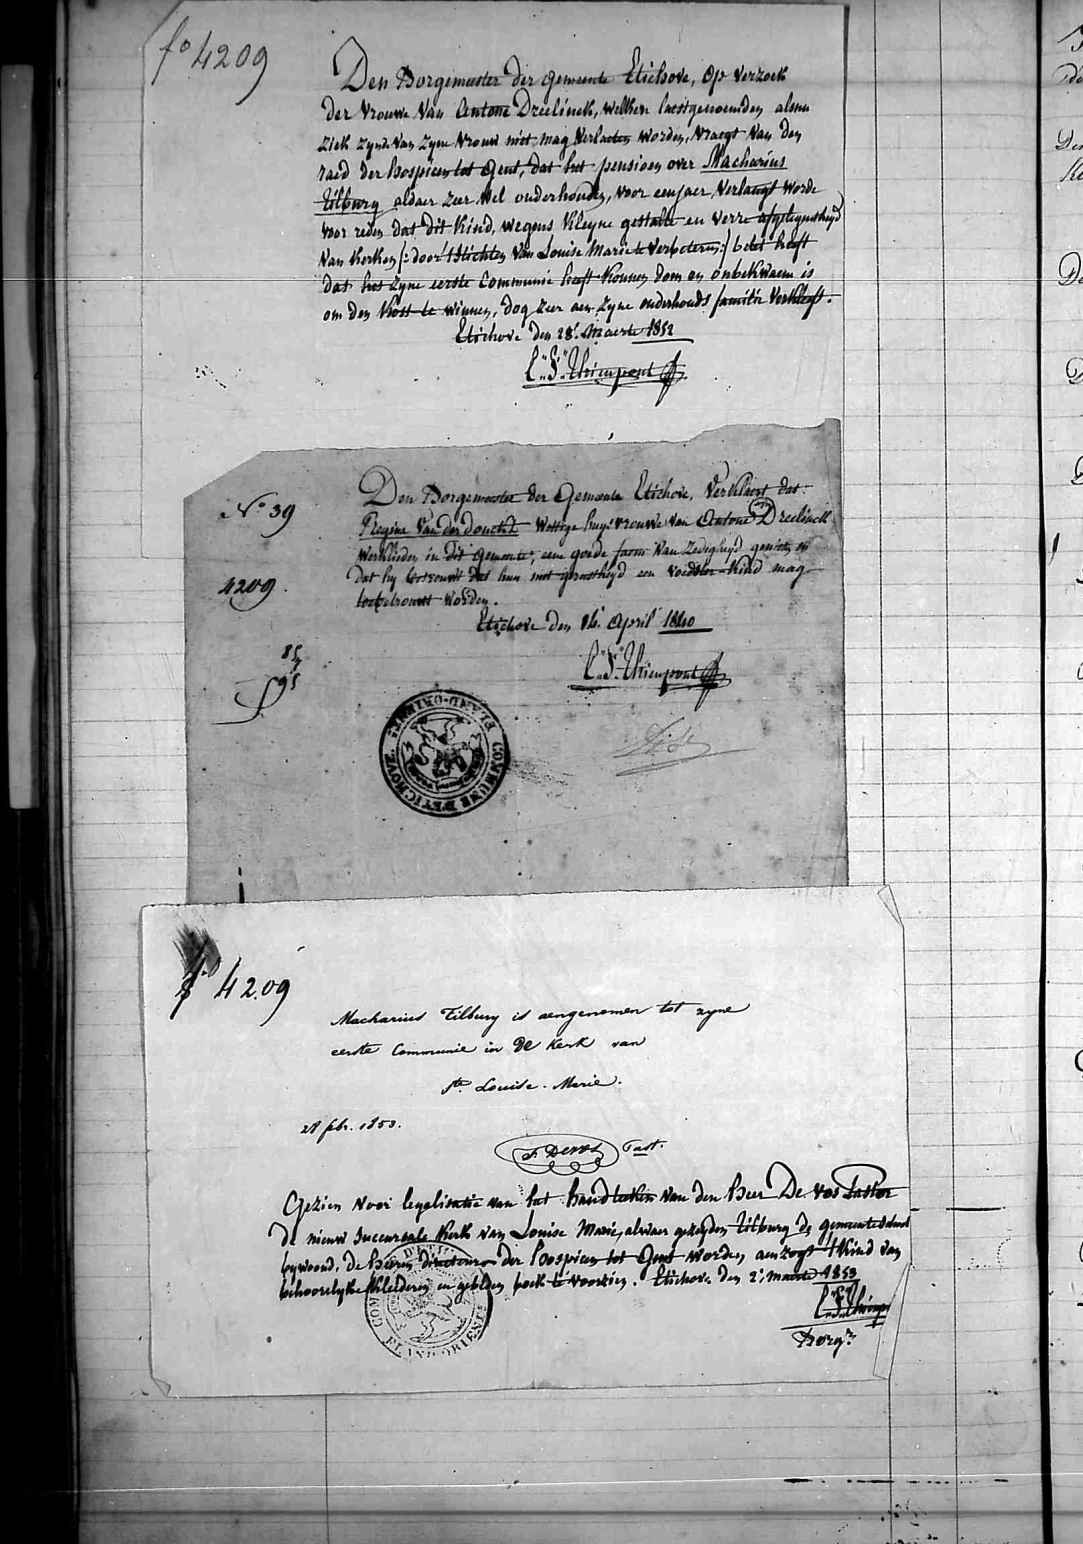 fo 4209
Den Borgemeester der gemeente Etichove, op verzoek
der vrouwe van Antone Dreelinck, welken laestgenoemden alsnu
ziek zynde van zyne vrouw niet mag verlaeten worden, vraegt van den
raed der hospicien tot Gent, dat het pensioen over Macharius
Tilbury aldaer zeer wel onderhouden, voor een jaer verlangt worde
voor reden dat dit kind, wegens kleyne gestalte en verre afgelegentheyd
van kerken (: door 't stichten van Louise Marie te verbeteren :) belet heeft
dat het zyne eerste Communie heeft konnen doen en onbekwaem is
om den kost te winnen, dog zeer aen zyne onderhouds familie verkleeft.
Etichove den 28e Maerte 1852
C. F. Thienpont
No 39
Den Borgemeester der Gemeente Etichove, verklaert dat
Regina Van der Donckt wettige huysvrouwe van Antone Dreelinck
werklieden in dit gemeente, eene goede faem van zedigheyd genieten en
dat hy vertrouwt dat hun met gerustheyd een voedster kind mag
toebetrouwt worden.
4209.
Etichove den 14e April 1840
85
95
C. F. Thienpont
COMMUNE D'ETICHOVE FLAND-ORIENT
fo 4209
Macharius Tilbury is aengenomen tot zyne
eerste Communie in de kerk van
Ste Louise-Marie.
28 febr. 1853.
F. De Vos Past.
Gezien voor legalisatie van het handteeken van den Heer De Vos Pastor
de nieuw succursale kerk van Louise Marie, alwaer gezeyden Tilbury de gemeente school
bywoond, de heeren directeurs der hospicien tot Gent worden aenzogt 't kind van
behoorelyke kleederen en gebeden boek te voorzien. Etichove den 2e maerte 1853
C. F. Thienpont
Borgr.